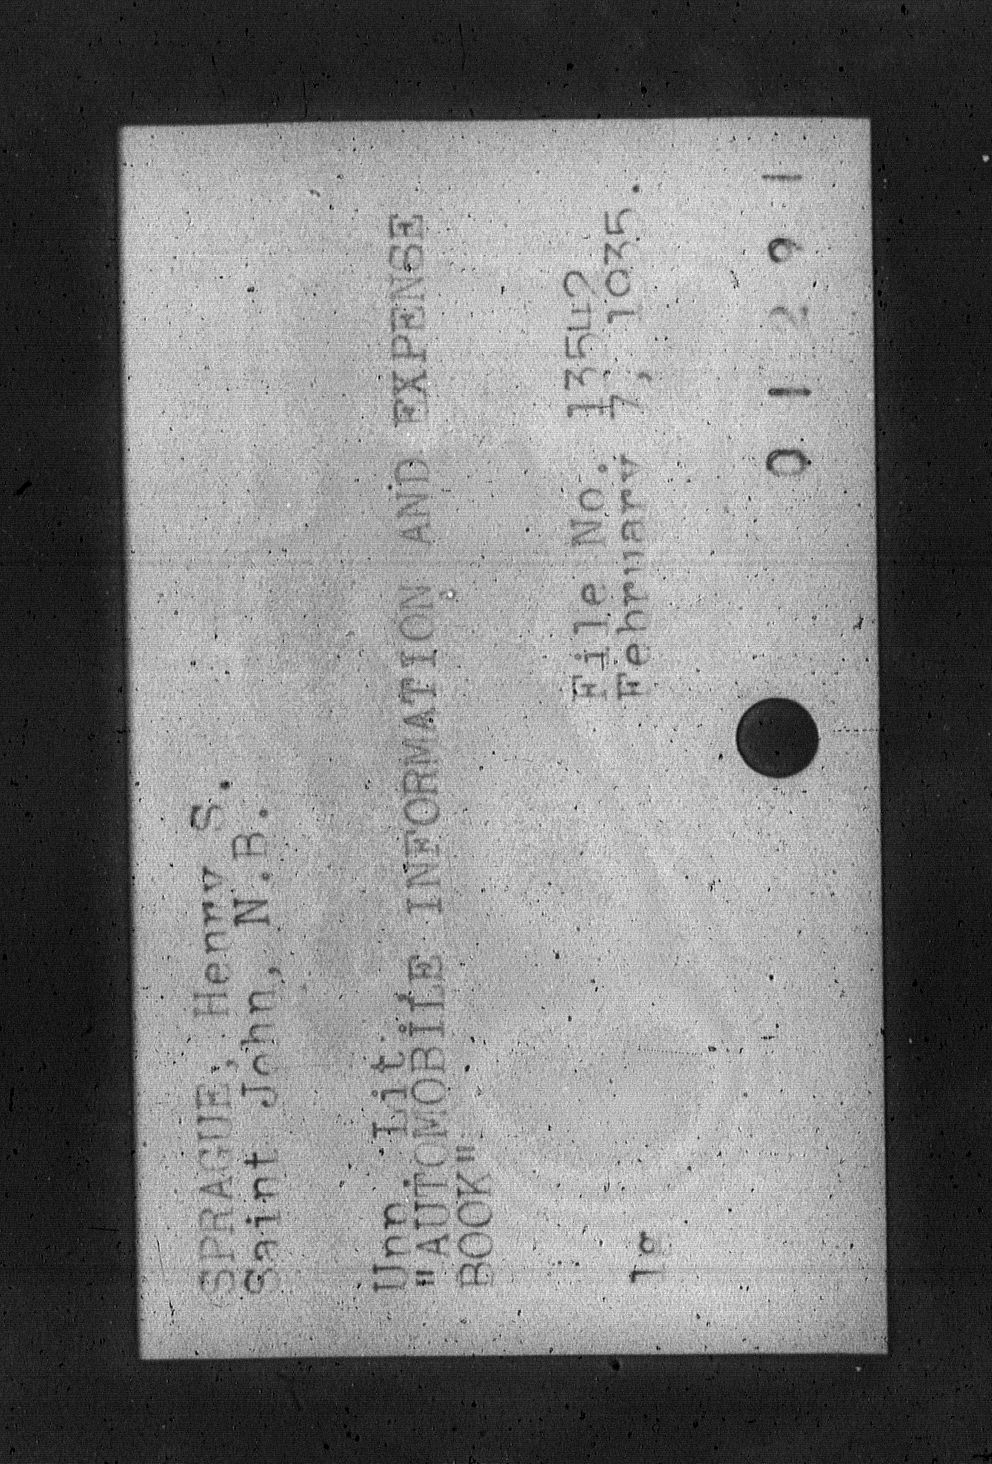 SPRAGUE, Henry S.
Saint John, N.B.
Unp. Lit.
"AUTOMOBILE INFORMATION AND EXPENSE
BOOK"
File No. 13542
February 7, 1935.
lg
01291